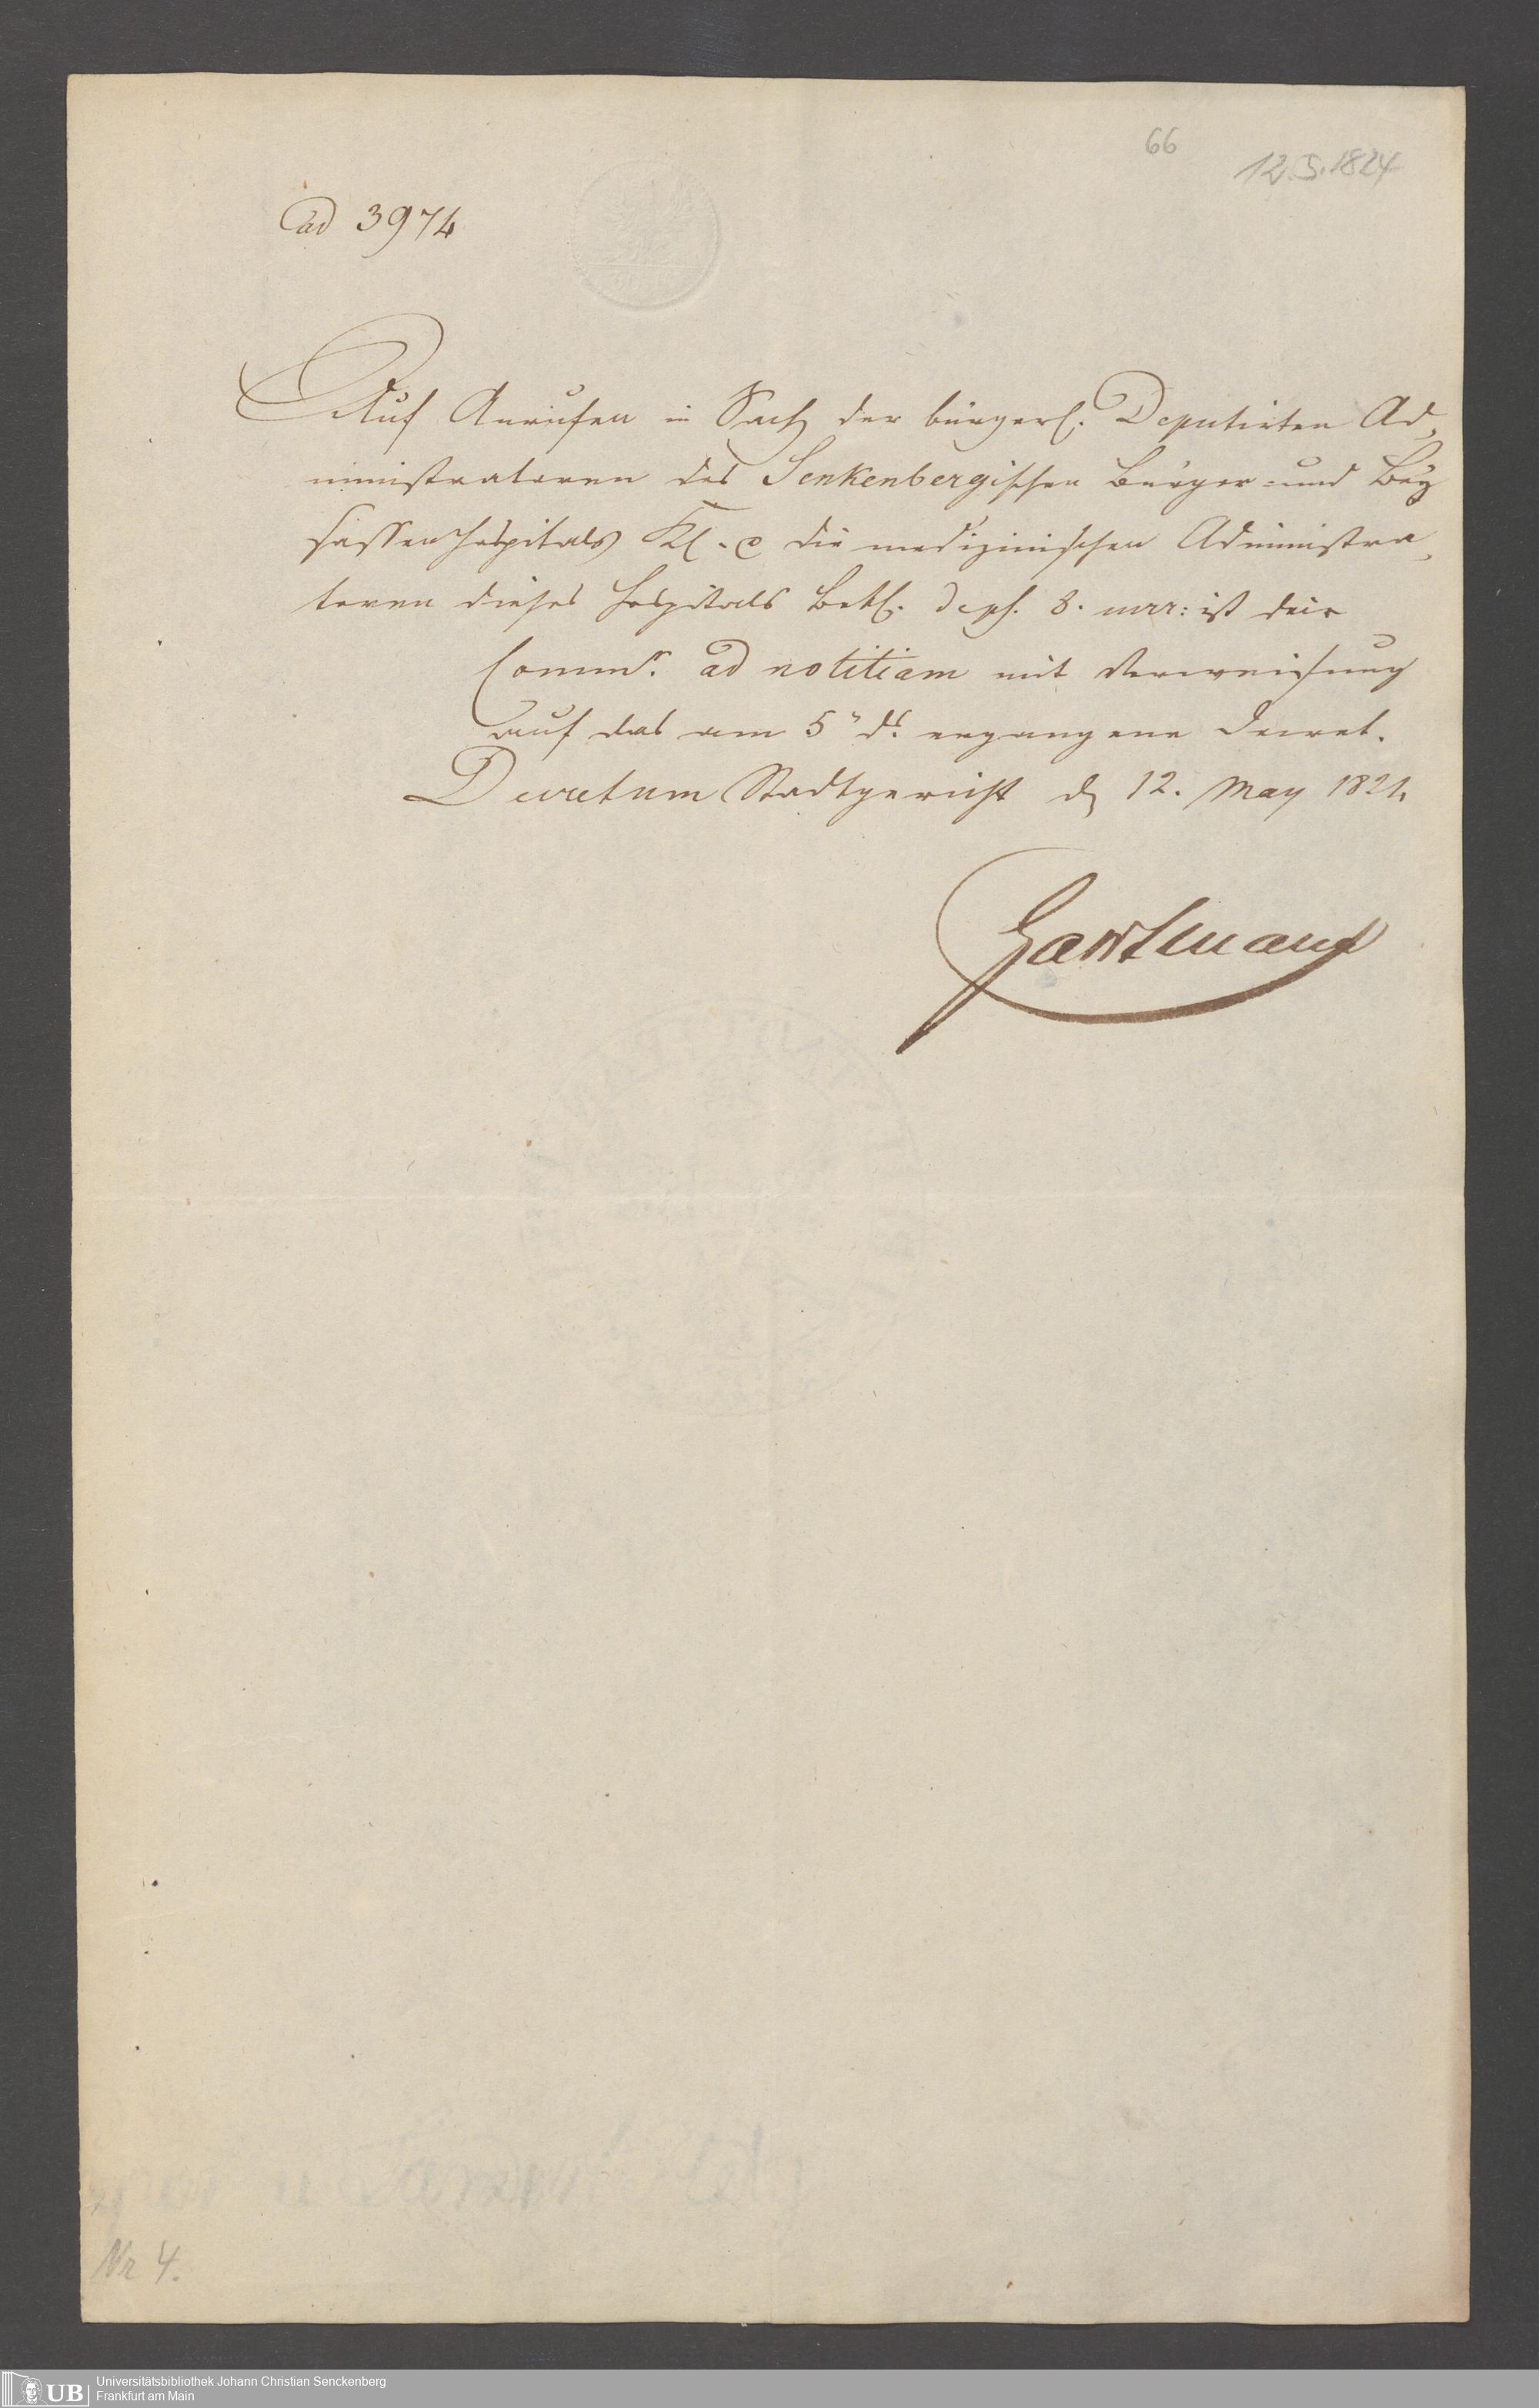 66
12.5.1824
ad 3974
Auf Anrufen in Sach der bürgerl. Deputirten Ad„
ministratoren des Senkenbergischen Bürger= und Bey
sassen Hospitals Kl. c die medizinischen Administra„
toren dieses Hospitals Bekl. deph. 8. ist
Comm. ad notitiam mit Verweisung
auf das am 5" ds. ergangene Decret.
Decretum Stadtgericht d 12. May 1824.
Hartmann
Nr 4.
UB
Universitätsbibliothek Johann Christian Senckenberg
Frankfurt am Main